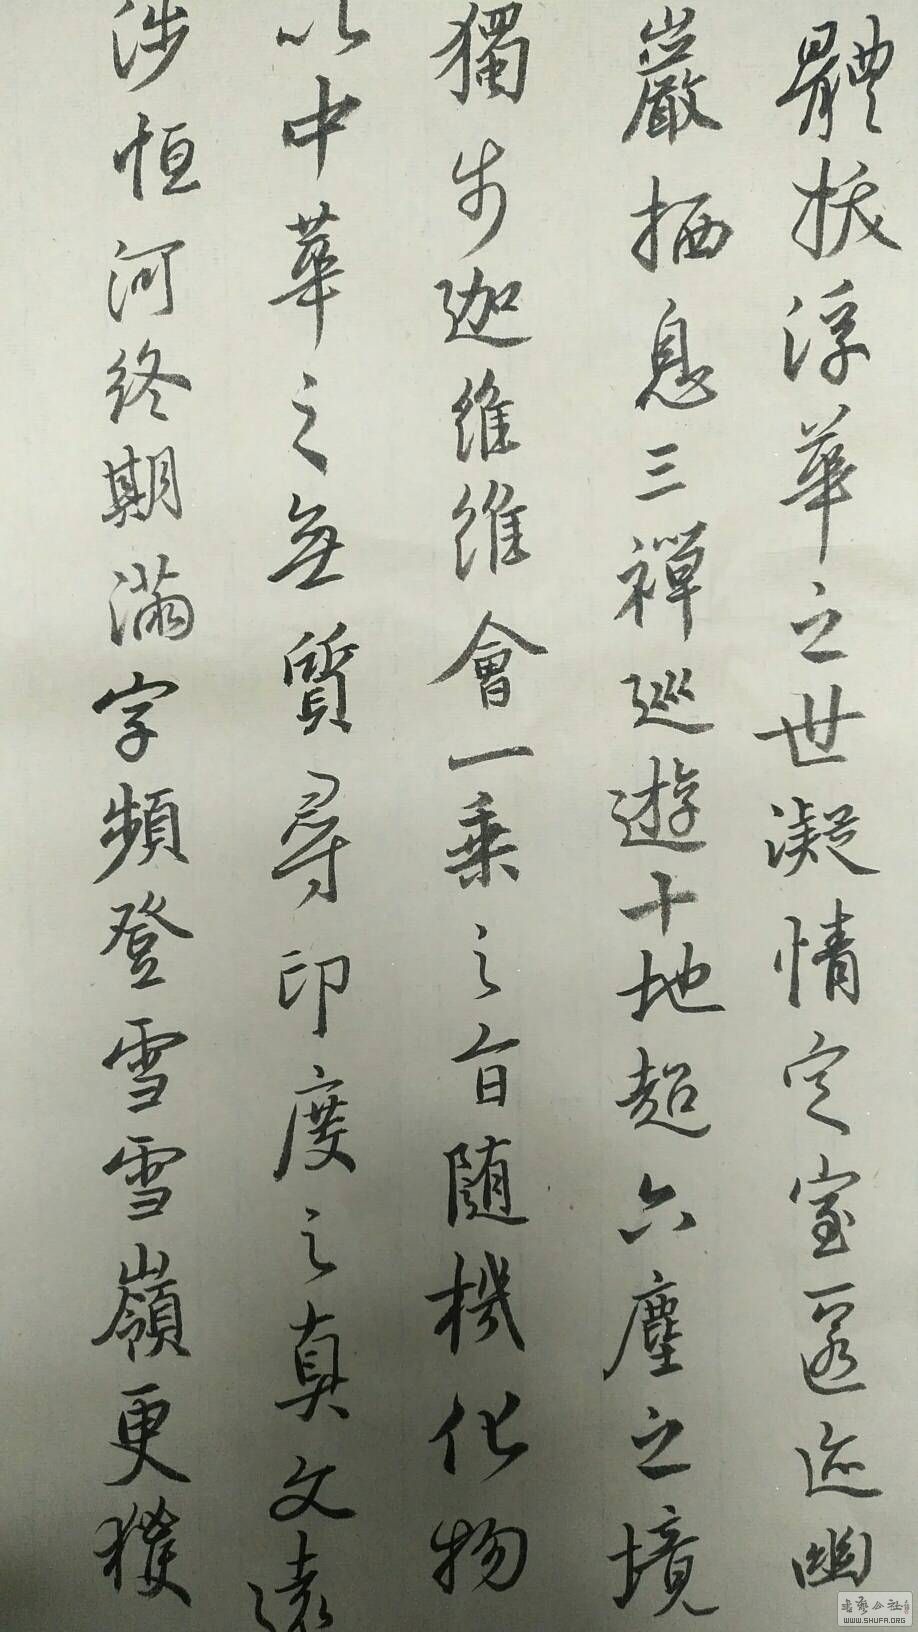 體拔浮華之世凝情定室匿迹幽
巖栖息三禪巡遊十地超六塵之境
獨步迦維維會一乘之旨随機化物
以中華之無質尋印度之真文遠
涉恒河終期滿字頻登雪雪嶺更獲
书艺公社
WWW.SHUFA.ORG